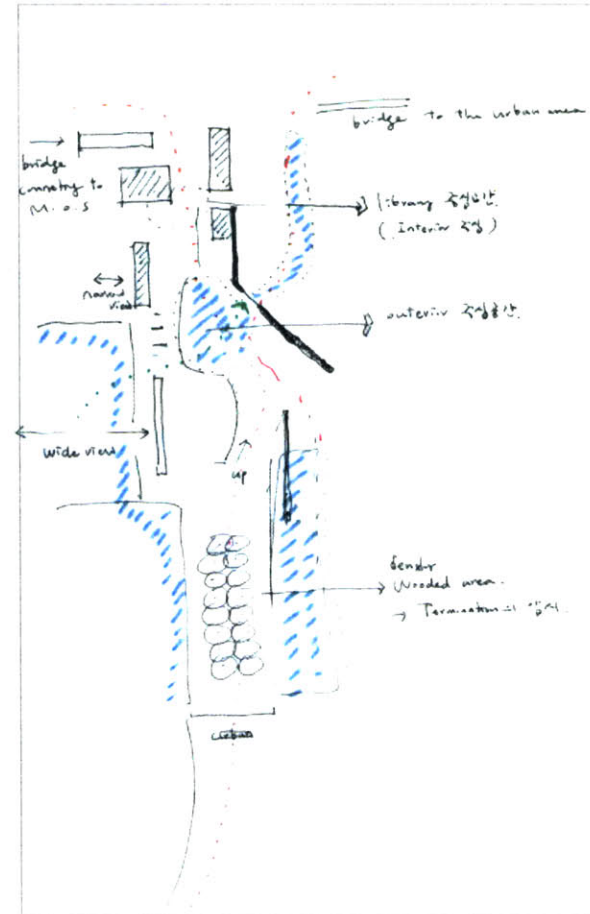 bridge to the urban area
bridge
connecting to
M.O.S
library 중심공간
( Interior 중심 )
narrow
view
exterior 중심공간
wide view
up
Wooded area.
→ Termination의
urban